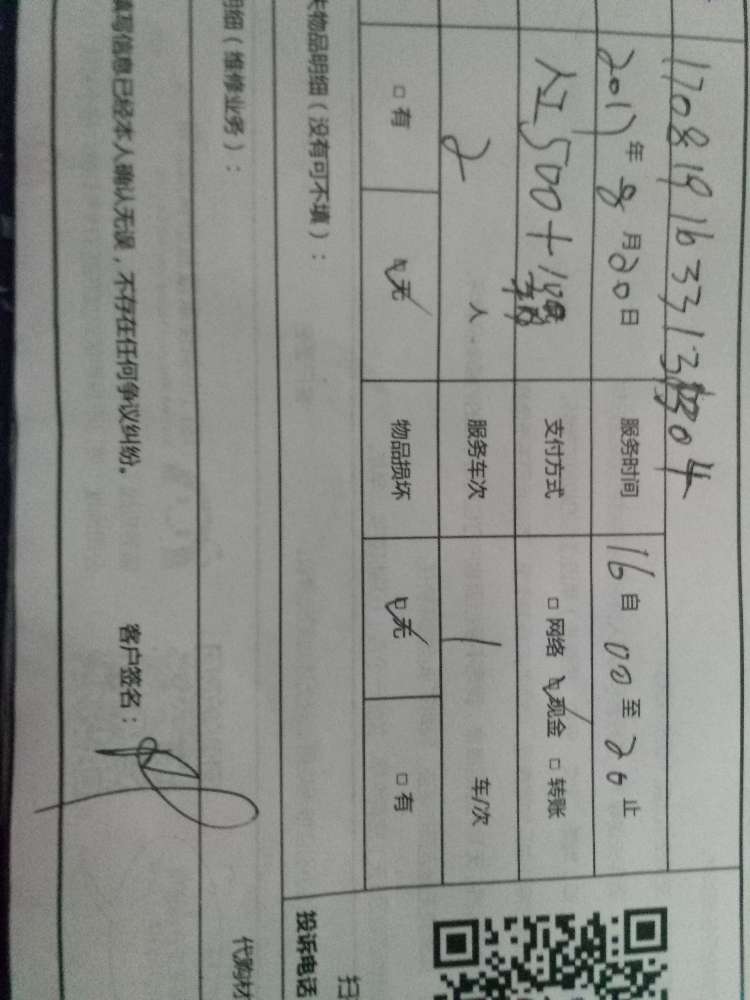 2017年8月20日 服务时间 16自00至20止
人工500+ 支付方式 □网络 ☑现金 □转账
2人 服务车次 1 车/次
□有 ☑无 物品损坏 ☑无 □有
物品明细（没有可不填）：
投诉电话
扫
明细（维修业务）：
代购材
填写信息已经本人确认无误，不存在任何争议纠纷。 客户签名：